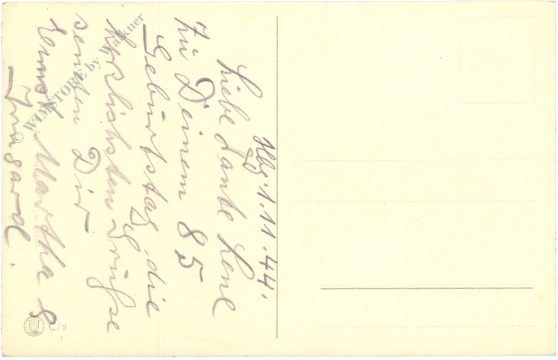 Hbg. 1.11.44.
Liebe Tante Lene
zu Deinem 85
Geburtstag die
herzlichsten Grüße
senden Dir
Ernst Martha &
Irmgard.
© WIMSTORE by Walkner